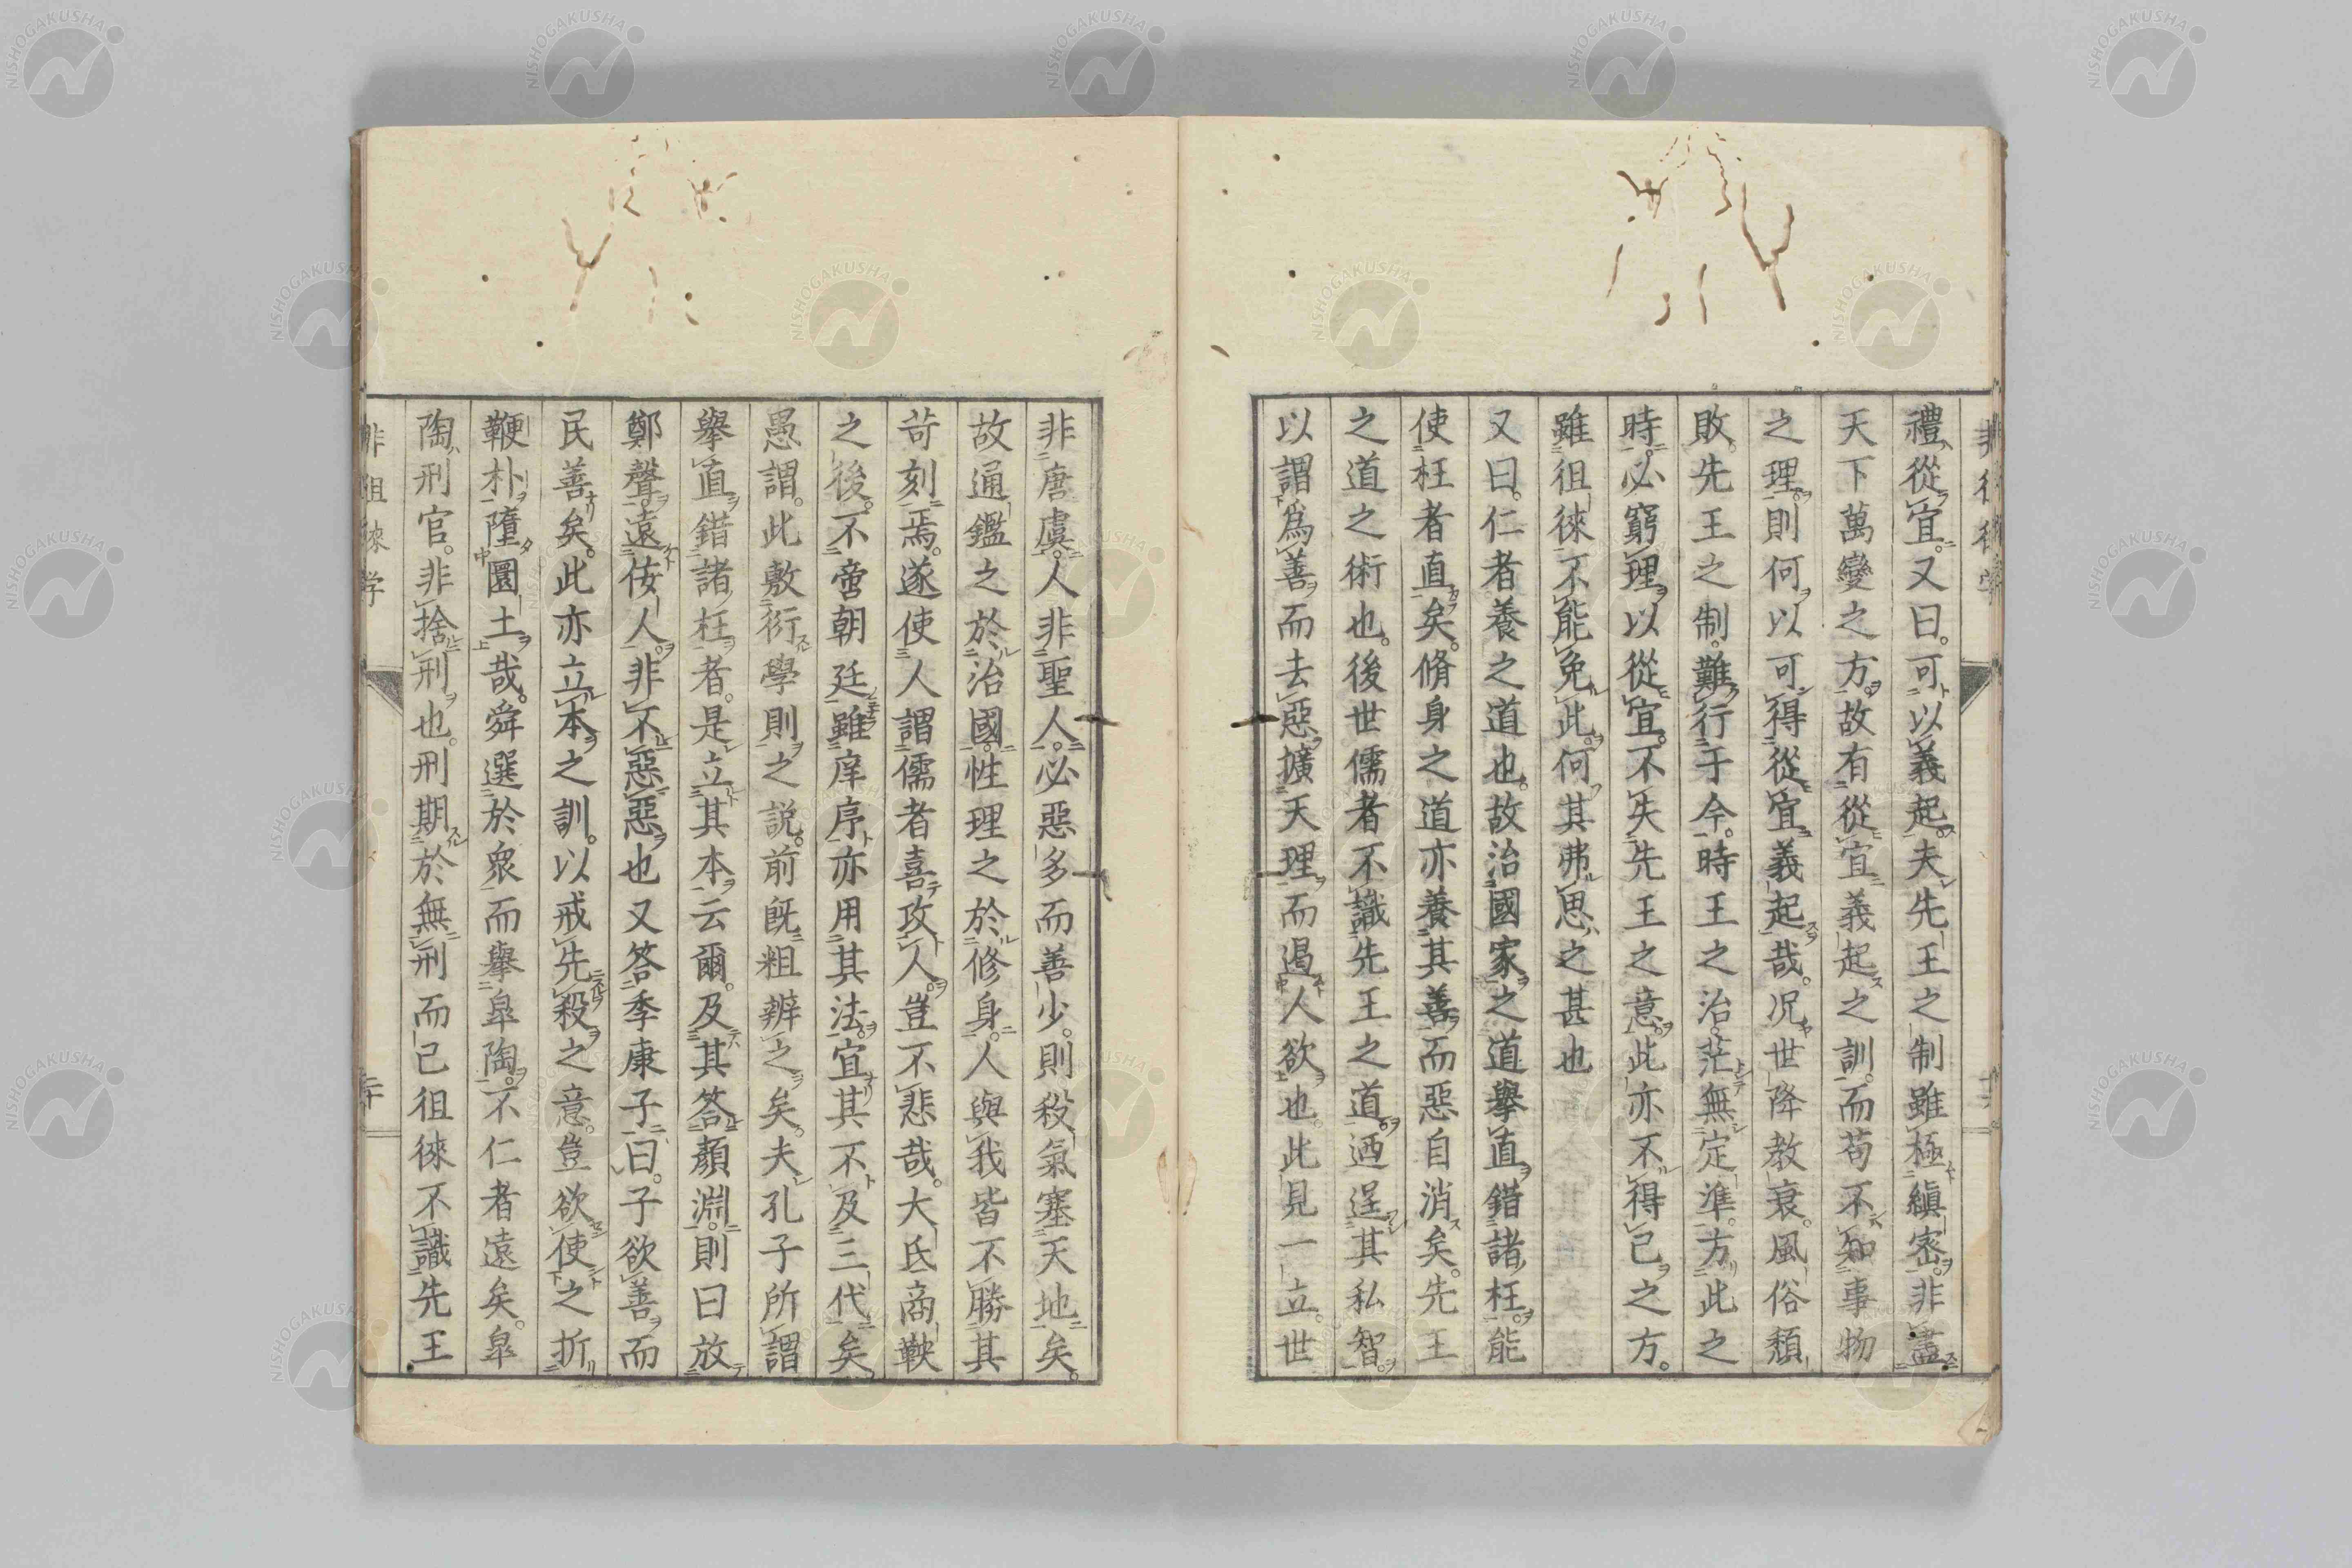 禮從宜。又曰。可以義起。夫先王之制雖極縝密。非盡
天下萬變之方。故有從宜義起之訓。而苟不知事物
之理。則何以可得從宜義起哉。况世降教衰。風俗頽
敗。先王之制。難行于今。時王之治。茫無定準。方此之
時。必窮理以從宜。不失先王之意。此亦不得已之方。
雖徂徠不能免此。何其弗思之甚也
又曰。仁者養之道也。故治國家之道。擧直錯諸枉。能
使枉者直矣。脩身之道亦養其善而惡自消矣。先王
之道之術也。後世儒者不識先王之道。迺逞其私智。
以謂爲善而去惡。擴天理而遏人欲也。此見一立。世
非唐虞。人非聖人。必惡多而善少。則殺氣塞天地矣。
故通鑑之於治國。性理之於修身。人與我皆不勝其
苛刻焉。遂使人謂儒者喜攻人。豈不悲哉。大氐商鞅
之後。不啻朝廷。雖庠序亦用其法。宜其不及三代矣
愚謂。此敷衍學則之說。前旣粗辨之矣。夫孔子所謂
擧直錯諸枉者。是立其本云爾。及其答顏淵。則曰放
鄭聲。遠佞人。非不惡惡也又答季康子曰。子欲善而
民善矣。此亦立本之訓。以戒先殺之意。豈欲使之折
鞭朴墮圜土哉。舜選於衆而擧皐陶。不仁者遠矣。皐
陶刑官。非捨刑也。刑期於無刑而已徂徠不識先王
非徂徠学